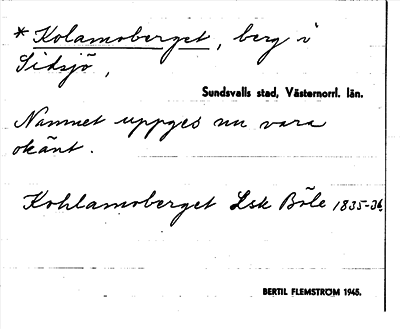 * Kolamoberget, berg i
Sidsjö,
Sundsvalls stad, Västernorrl. län.
Namnet uppges nu vara
okänt.
Kohlamoberget Lsk Böle 1835-36
BERTIL FLEMSTRÖM 1945.